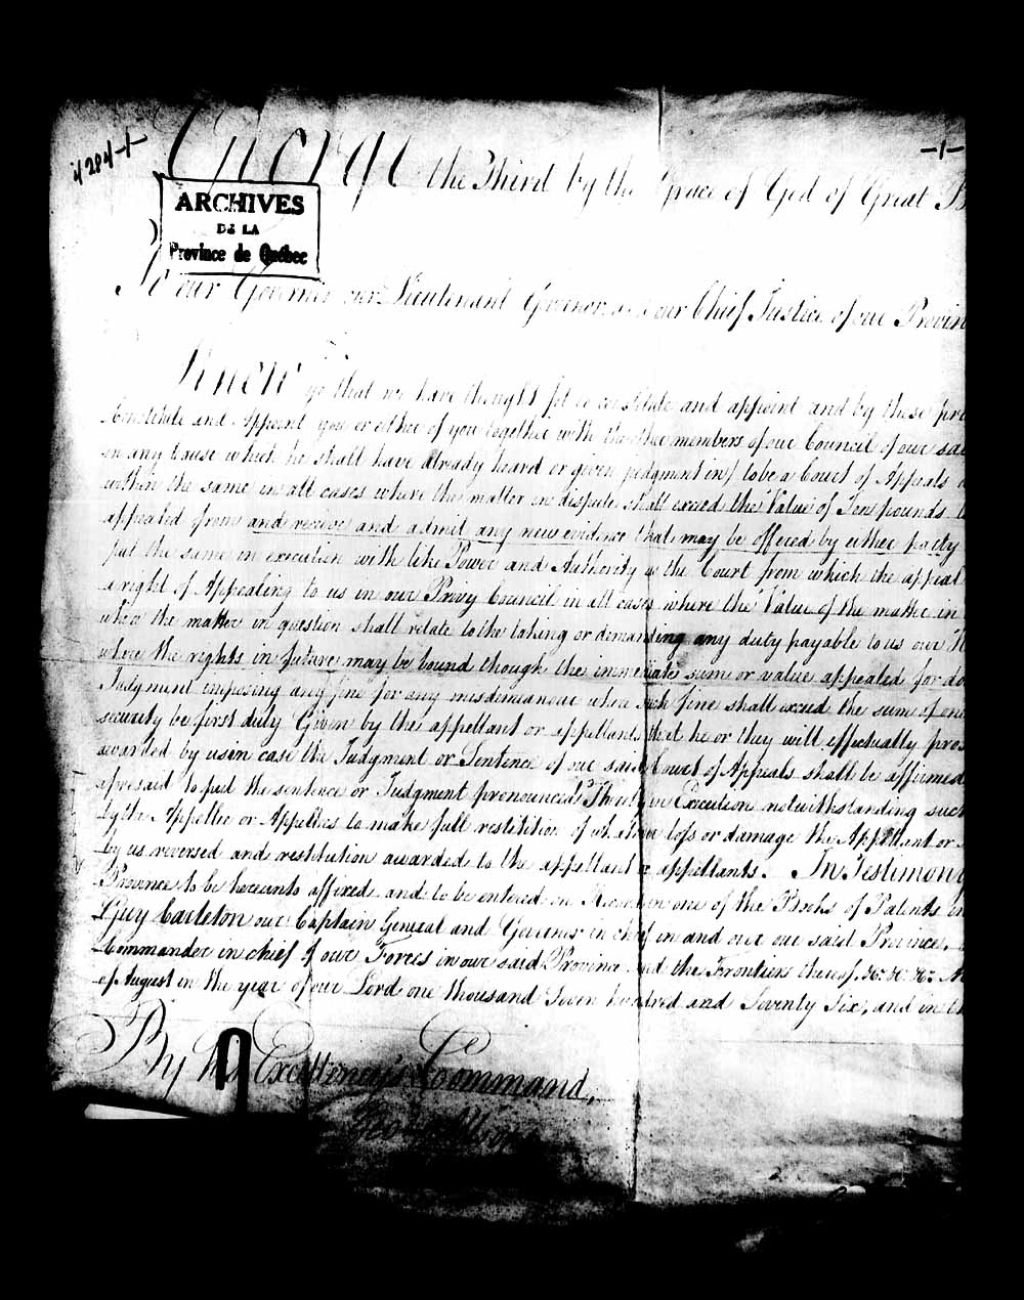 4284-1-
-1-
George the Third by the Grace of God of Great B
ARCHIVES
DE LA
Province de Québec
To our Governor our Lieutenant Governor our Chief Justice of our Provin
Know ye that we have thought fit to constitute and appoint and by these pre
Constitute and Appoint you or either of you together with the other members of our Council of our sai
in any Cause which he shall have already heard or given judgment in) to be a Court of Appeals
within the same in all cases where the matter in dispute shall exceed the Value of Ten pounds
appealed from and receive and admit any new evidence that may be offered by either party
put the same in execution with like Power and Authority as the Court from which the appeal
a right of Appealing to us in our Privy Council in all cases where the Value of the matter in
where the matter in question shall relate to the taking or demanding any duty payable to us our
where the rights in future may be bound though the immediate sum or value appealed for do
Judgment imposing any fine for any misdemeanour where such fine shall exceed the sum of one
security be first duly Given by the appellant or appellants that he or they will effectually pros
awarded by us in case the Judgment or Sentence of our said Court of Appeals shall be affirmed
aforesaid to put the sentence or Judgment pronounced Therein in Execution notwithstanding such
by the Appellee or Appellees to make full restitition of whatever loss or damage the Appellant or
by us reversed and restitution awarded to the appellant or appellants. In Testimony
Province to be hereunto affixed and to be entered on Record in one of the Books of Patents in
Guy Carleton our Captain General and Governor in chief in and over our said Province,
Commander in chief of our Forces in our said Province and the Frontiers thereof &c: &c: &c:
of August in the year of our Lord one thousand Seven hundred and Seventy Six, and in th
By his Excellency's Command,